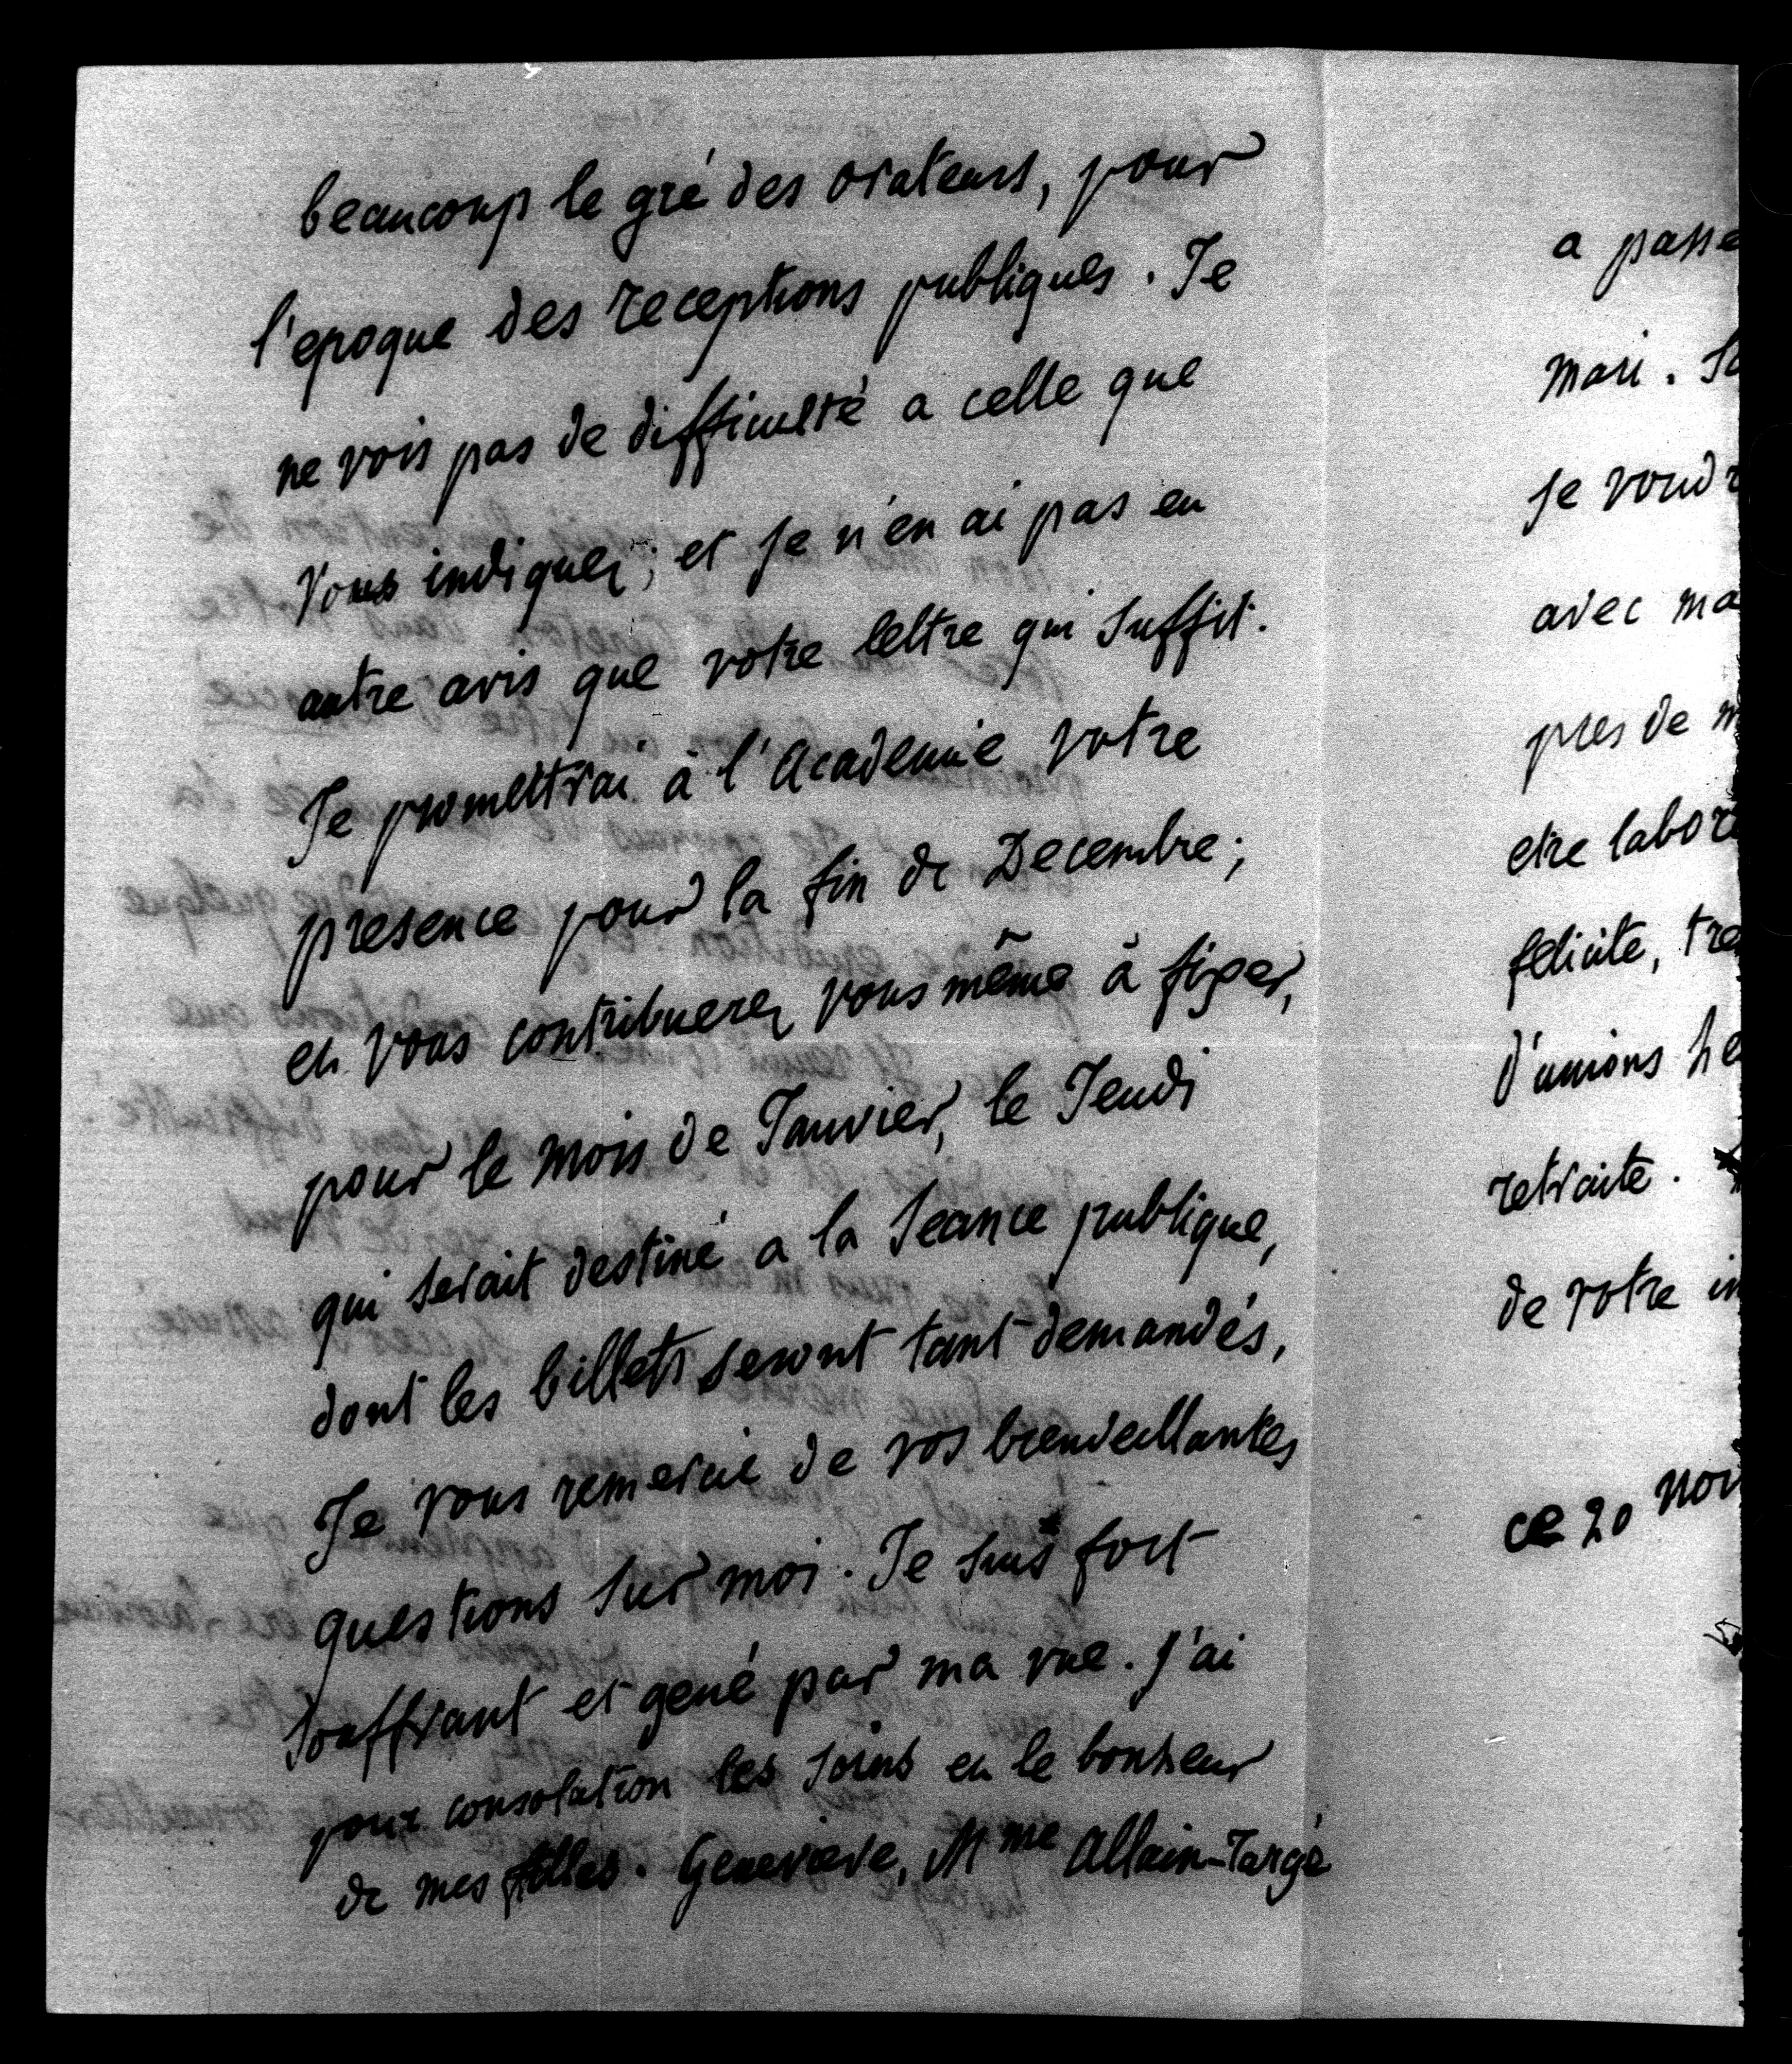 beaucoup le gré des orateurs, pour
l'epoque des receptions publiques. Je
ne vois pas de difficulté a celle que
vous indiquez; et je n'en ai pas eu
autre avis que votre lettre qui suffit.
Je promettrai à l'Academie votre
presence pour la fin de Decembre;
et vous contribuerez vous même à fixer,
pour le mois de Janvier, le Jeudi
qui serait destiné a la seance publique,
dont les billets seront tant demandés,
Je vous remercie de vos bienveillantes
questions sur moi. Je suis fort
souffrant et gené par ma vue. J'ai
pour consolation les soins et le bonheur
de mes filles. Genevieve, Mme Allain-Targé
a passé
mari.
je voud
avec ma
pres de
etre labor
felicite, tre
d'unions he
retraite.
de votre in
ce 20 nov